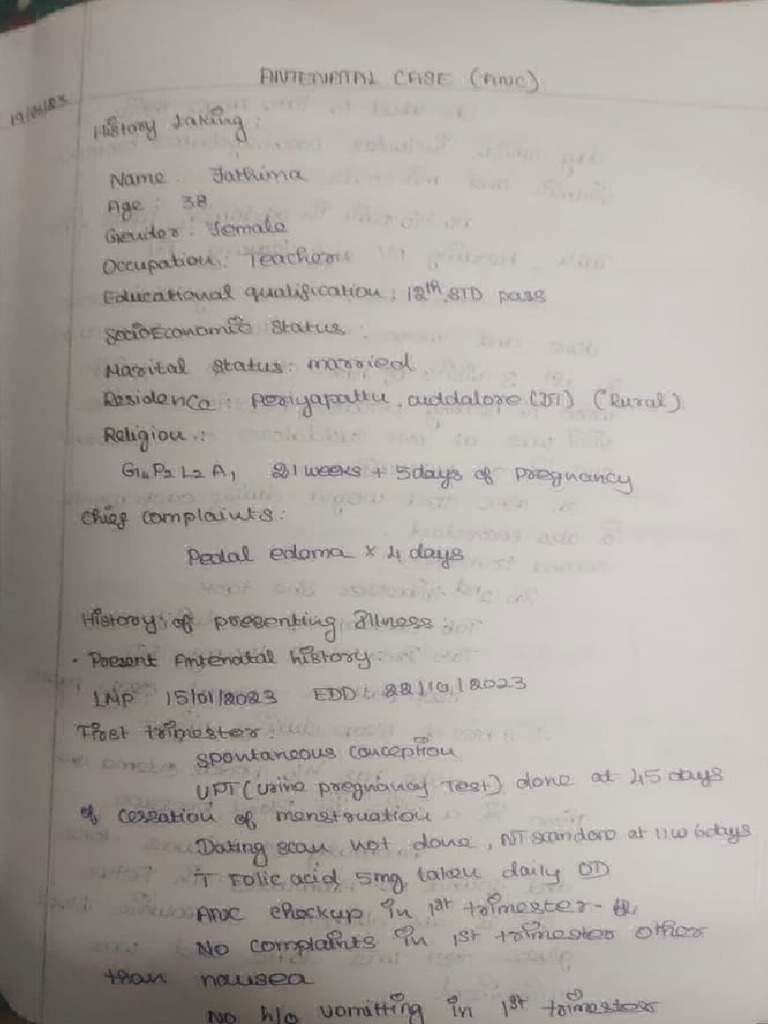 ANTENATAL CASE (ANC)
History taking:
Name: Fathima
Age: 38
Gender: Female
Occupation: Teacher
Educational qualification: 12th STD pass
SocioEconomic Status:
Marital Status: married
Residence: Periyapattu, cuddalore (DT) (Rural)
Religion:
G4 P2 L2 A1 21 weeks + 5 days of Pregnancy
Chief complaints:
Pedal edema × 4 days
History of presenting illness:
• Present Antenatal history:
LMP 15/01/2023 EDD: 22/10/2023
First trimester:
spontaneous conception
UPT (urine pregnancy Test) done at 45 days
of cessation of menstruation
Dating scan not done, NT scan done at 11w 6days
T Folic acid 5mg taken daily OD
ANC checkup in 1st trimester -
No complaints in 1st trimester other
than nausea
No h/o vomitting in 1st trimester